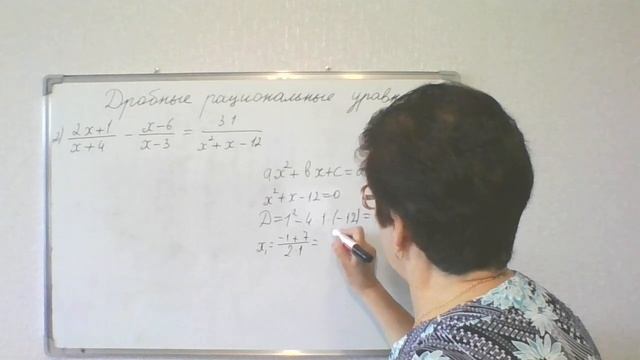 Дробные рациональные уравн
2) \frac{2x+1}{x+4} - \frac{x-6}{x-3} = \frac{31}{x^2+x-12}
ax²+bx+c=
x²+x-12=0
D=1²-4·1·(-12)=
x₁=\frac{-1+7}{2·1}=